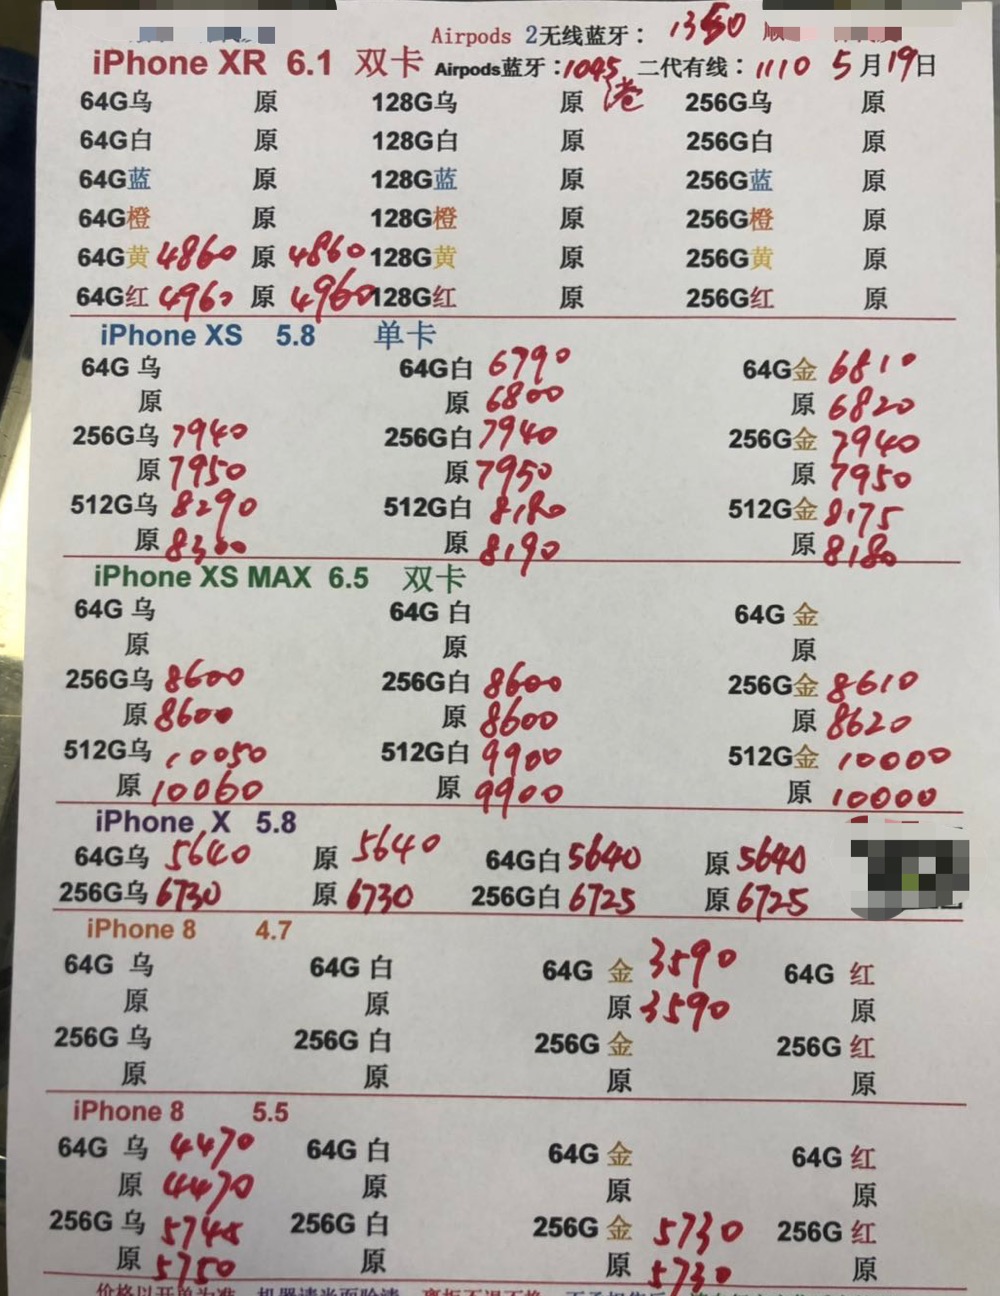 Airpods 2无线蓝牙： 1350 顺
iPhone XR 6.1 双卡 Airpods蓝牙：1045 二代有线：1110 5月19日
港
64G乌 原 128G乌 原 256G乌 原
64G白 原 128G白 原 256G白 原
64G蓝 原 128G蓝 原 256G蓝 原
64G橙 原 128G橙 原 256G橙 原
64G黄 4860 原 4860 128G黄 原 256G黄 原
64G红 4960 原 4960 128G红 原 256G红 原
iPhone XS 5.8 单卡
64G 乌 64G白 6790 64G金 6810
原 原 6800 原 6820
256G乌 7940 256G白 7940 256G金 7940
原 7950 原 7950 原 7950
512G乌 8290 512G白 8180 512G金 8175
原 8300 原 8190 原 8180
iPhone XS MAX 6.5 双卡
64G 乌 64G 白 64G 金
原 原 原
256G乌 8600 256G白 8600 256G金 8610
原 8600 原 8600 原 8620
512G乌 10050 512G白 9900 512G金 10000
原 10060 原 9900 原 10000
iPhone X 5.8
64G乌 5640 原 5640 64G白 5640 原 5640
256G乌 6730 原 6730 256G白 6725 原 6725
iPhone 8 4.7
64G 乌 64G 白 64G 金 3590 64G 红
原 原 原 3590 原
256G 乌 256G 白 256G 金 256G 红
原 原 原 原
iPhone 8 5.5
64G 乌 4470 64G 白 64G 金 64G 红
原 4470 原 原 原
256G 乌 5745 256G 白 256G 金 5730 256G 红
原 5750 原 原 5730 原
价格以开单为准